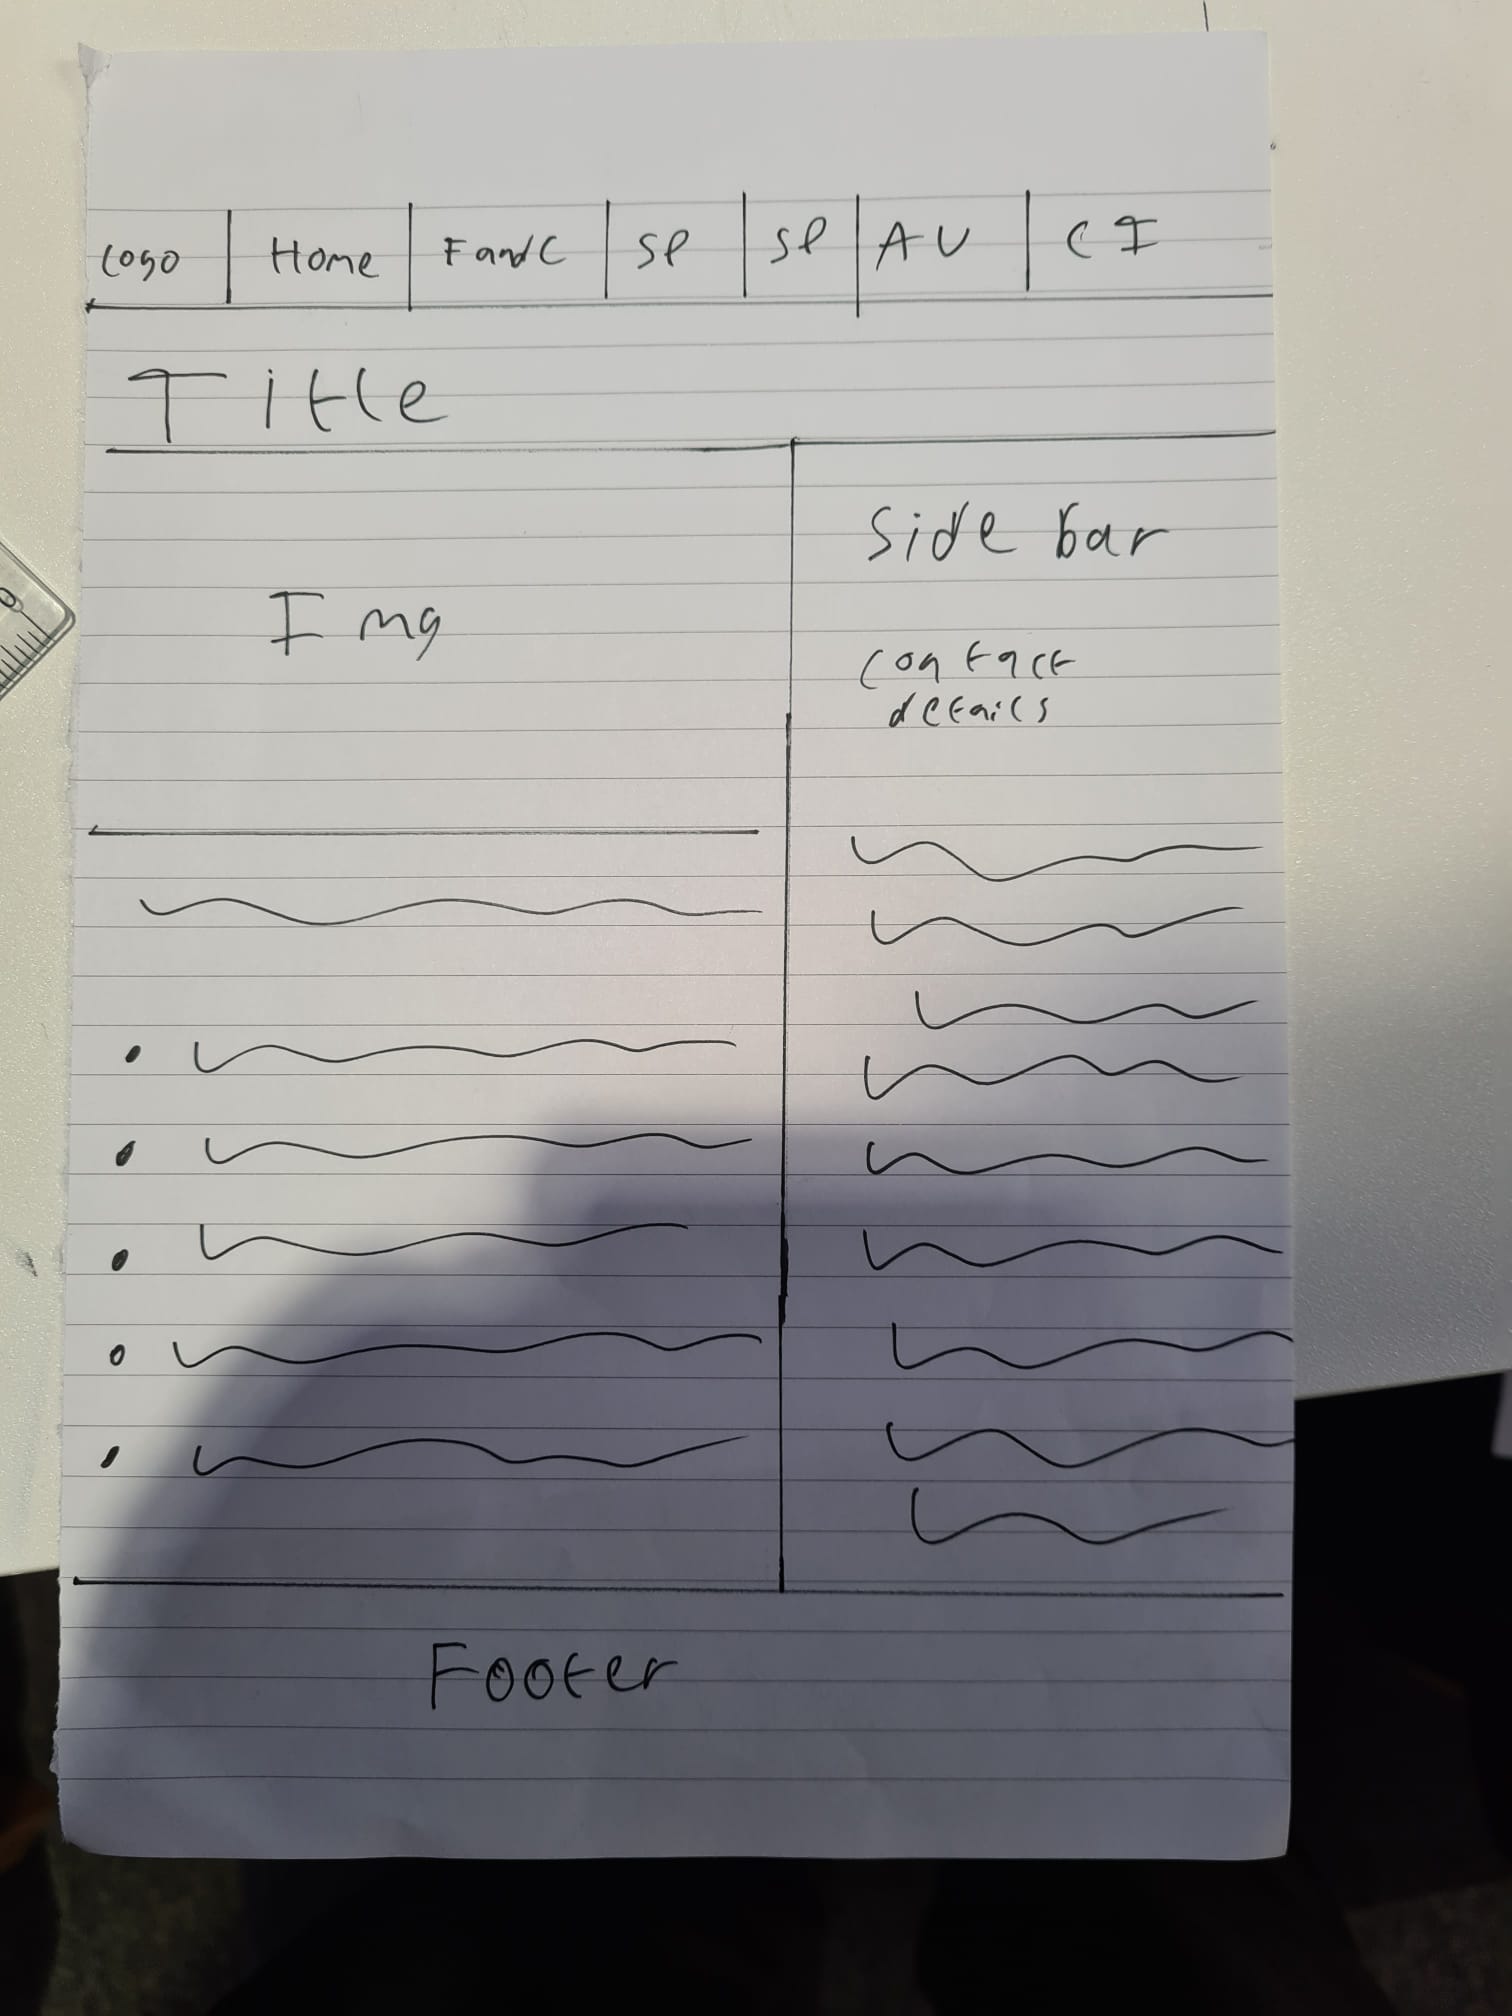 Logo Home FandC SP SP AU CI
Title
Side bar
Img
Contact
details
Footer